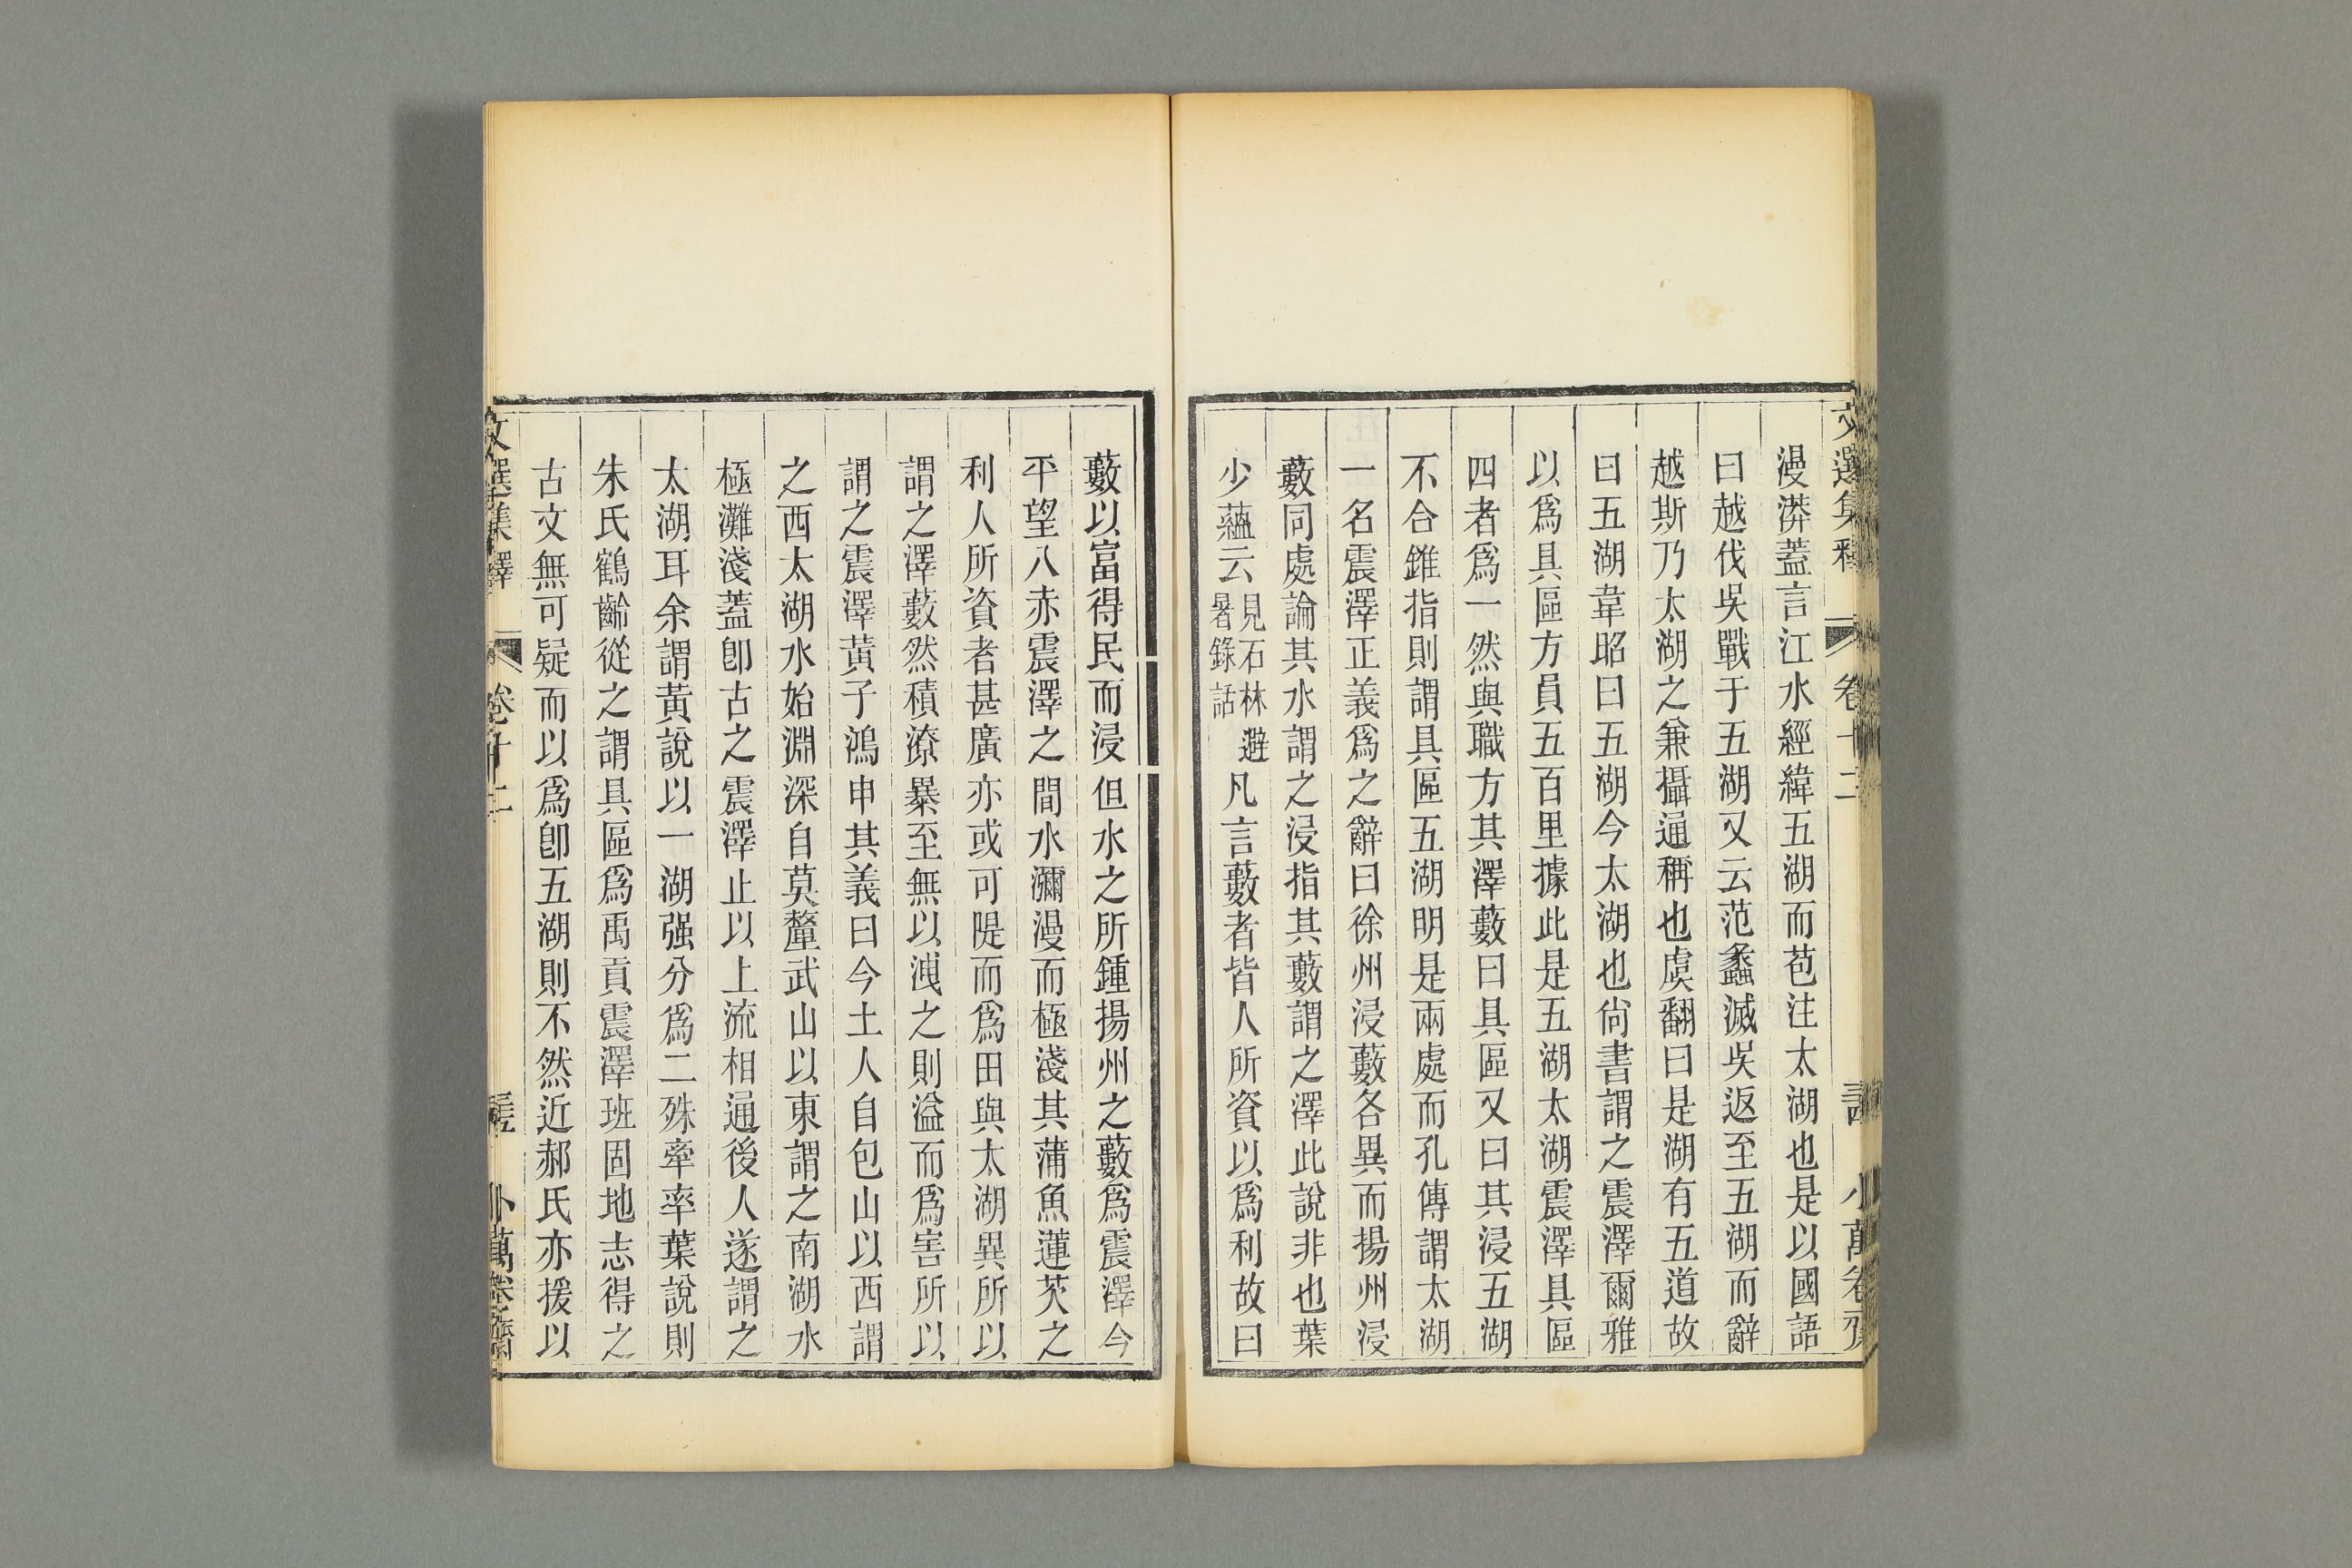 漫漭蓋言江水經緯五湖而苞注太湖也是以國語
曰越伐吳戰于五湖又云范蠡滅吳返至五湖而辭
越斯乃太湖之兼攝通稱也虞翻曰是湖有五道故
曰五湖韋昭曰五湖今太湖也尙書謂之震澤爾雅
以爲具區方員五百里據此是五湖太湖震澤具區
四者爲一然與職方其澤藪曰具區又曰其浸五湖
不合錐指則謂具區五湖明是兩處而孔傳謂太湖
一名震澤正義爲之辭曰徐州浸藪各異而揚州浸
藪同處論其水謂之浸指其藪謂之澤此說非也葉
少蘊云見石林避暑錄話凡言藪者皆人所資以爲利故曰
藪以富得民而浸但水之所鍾揚州之藪爲震澤今
平望八赤震澤之間水瀰漫而極淺其蒲魚蓮芡之
利人所資者甚廣亦或可隄而爲田與太湖異所以
謂之澤藪然積潦暴至無以洩之則溢而爲害所以
謂之震澤黃子鴻申其義曰今土人自包山以西謂
之西太湖水始淵深自莫釐武山以東謂之南湖水
極灘淺蓋卽古之震澤止以上流相通後人遂謂之
太湖耳余謂黃說以一湖强分爲二殊牽率葉說則
朱氏鶴齡從之謂具區爲禹貢震澤班固地志得之
古文無可疑而以爲卽五湖則不然近郝氏亦援以
文選集釋
卷十二
小萬卷齋